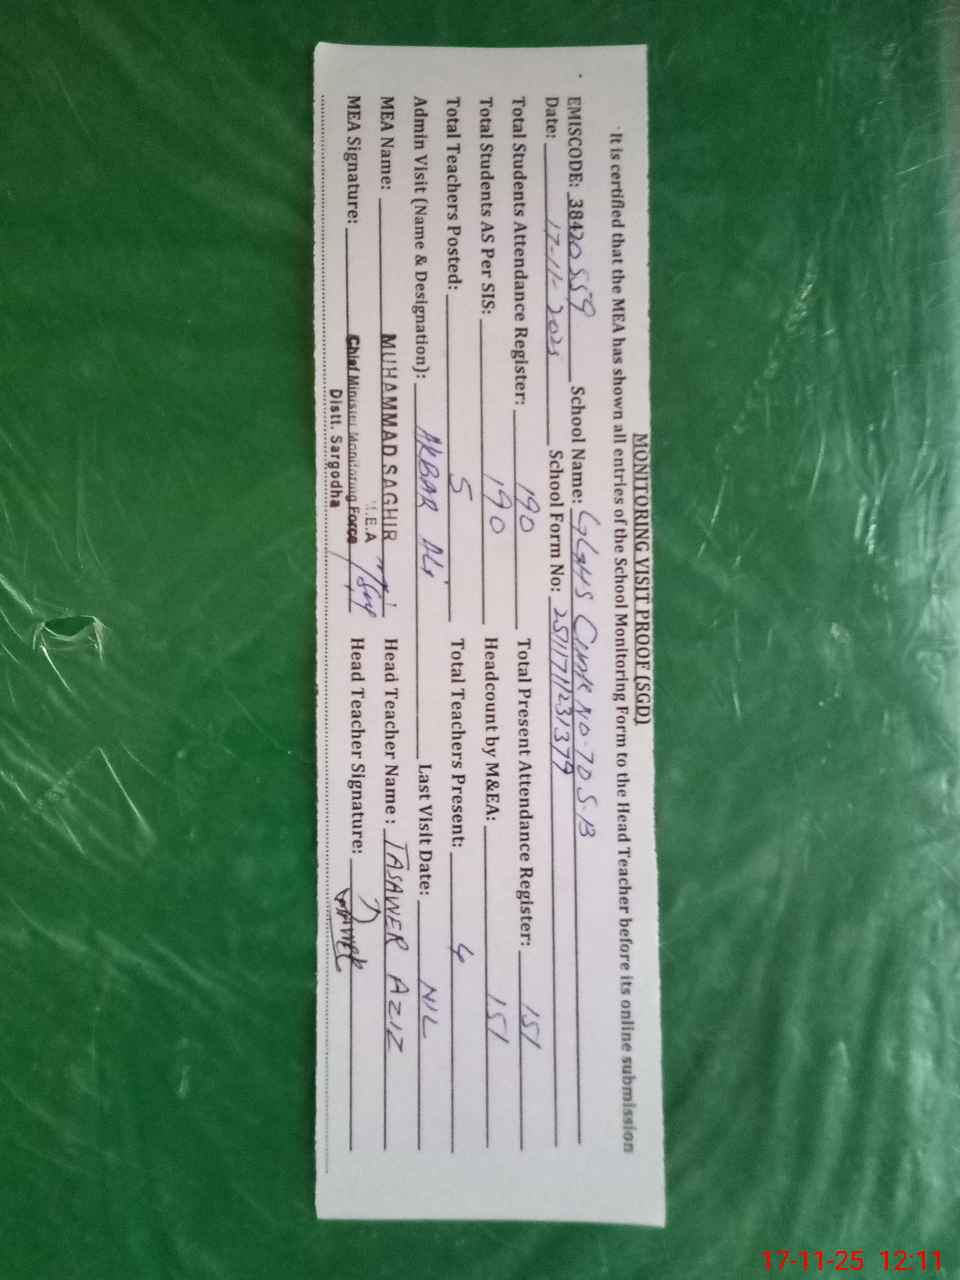 MONITORING VISIT PROOF (SGD)
It is certified that the MEA has shown all entries of the School Monitoring Form to the Head Teacher before its online submission
EMISCODE: 38420559 School Name: GGHS Chak No. 70 S.B
Date: 17-11-2025 School Form No: 25111711231379
Total Students Attendance Register: 190 Total Present Attendance Register: 151
Total Students AS Per SIS: 190 Headcount by M&EA: 151
Total Teachers Posted: 5 Total Teachers Present: 4
Admin Visit (Name & Designation): AKBAR Ali Last Visit Date: NIL
MEA Name: MUHAMMAD SAGHIR Head Teacher Name: TASAWER AZIZ
M.E.A
MEA Signature: Chief Minister Monitoring Force Head Teacher Signature:
Distt. Sargodha
17-11-25 12:11